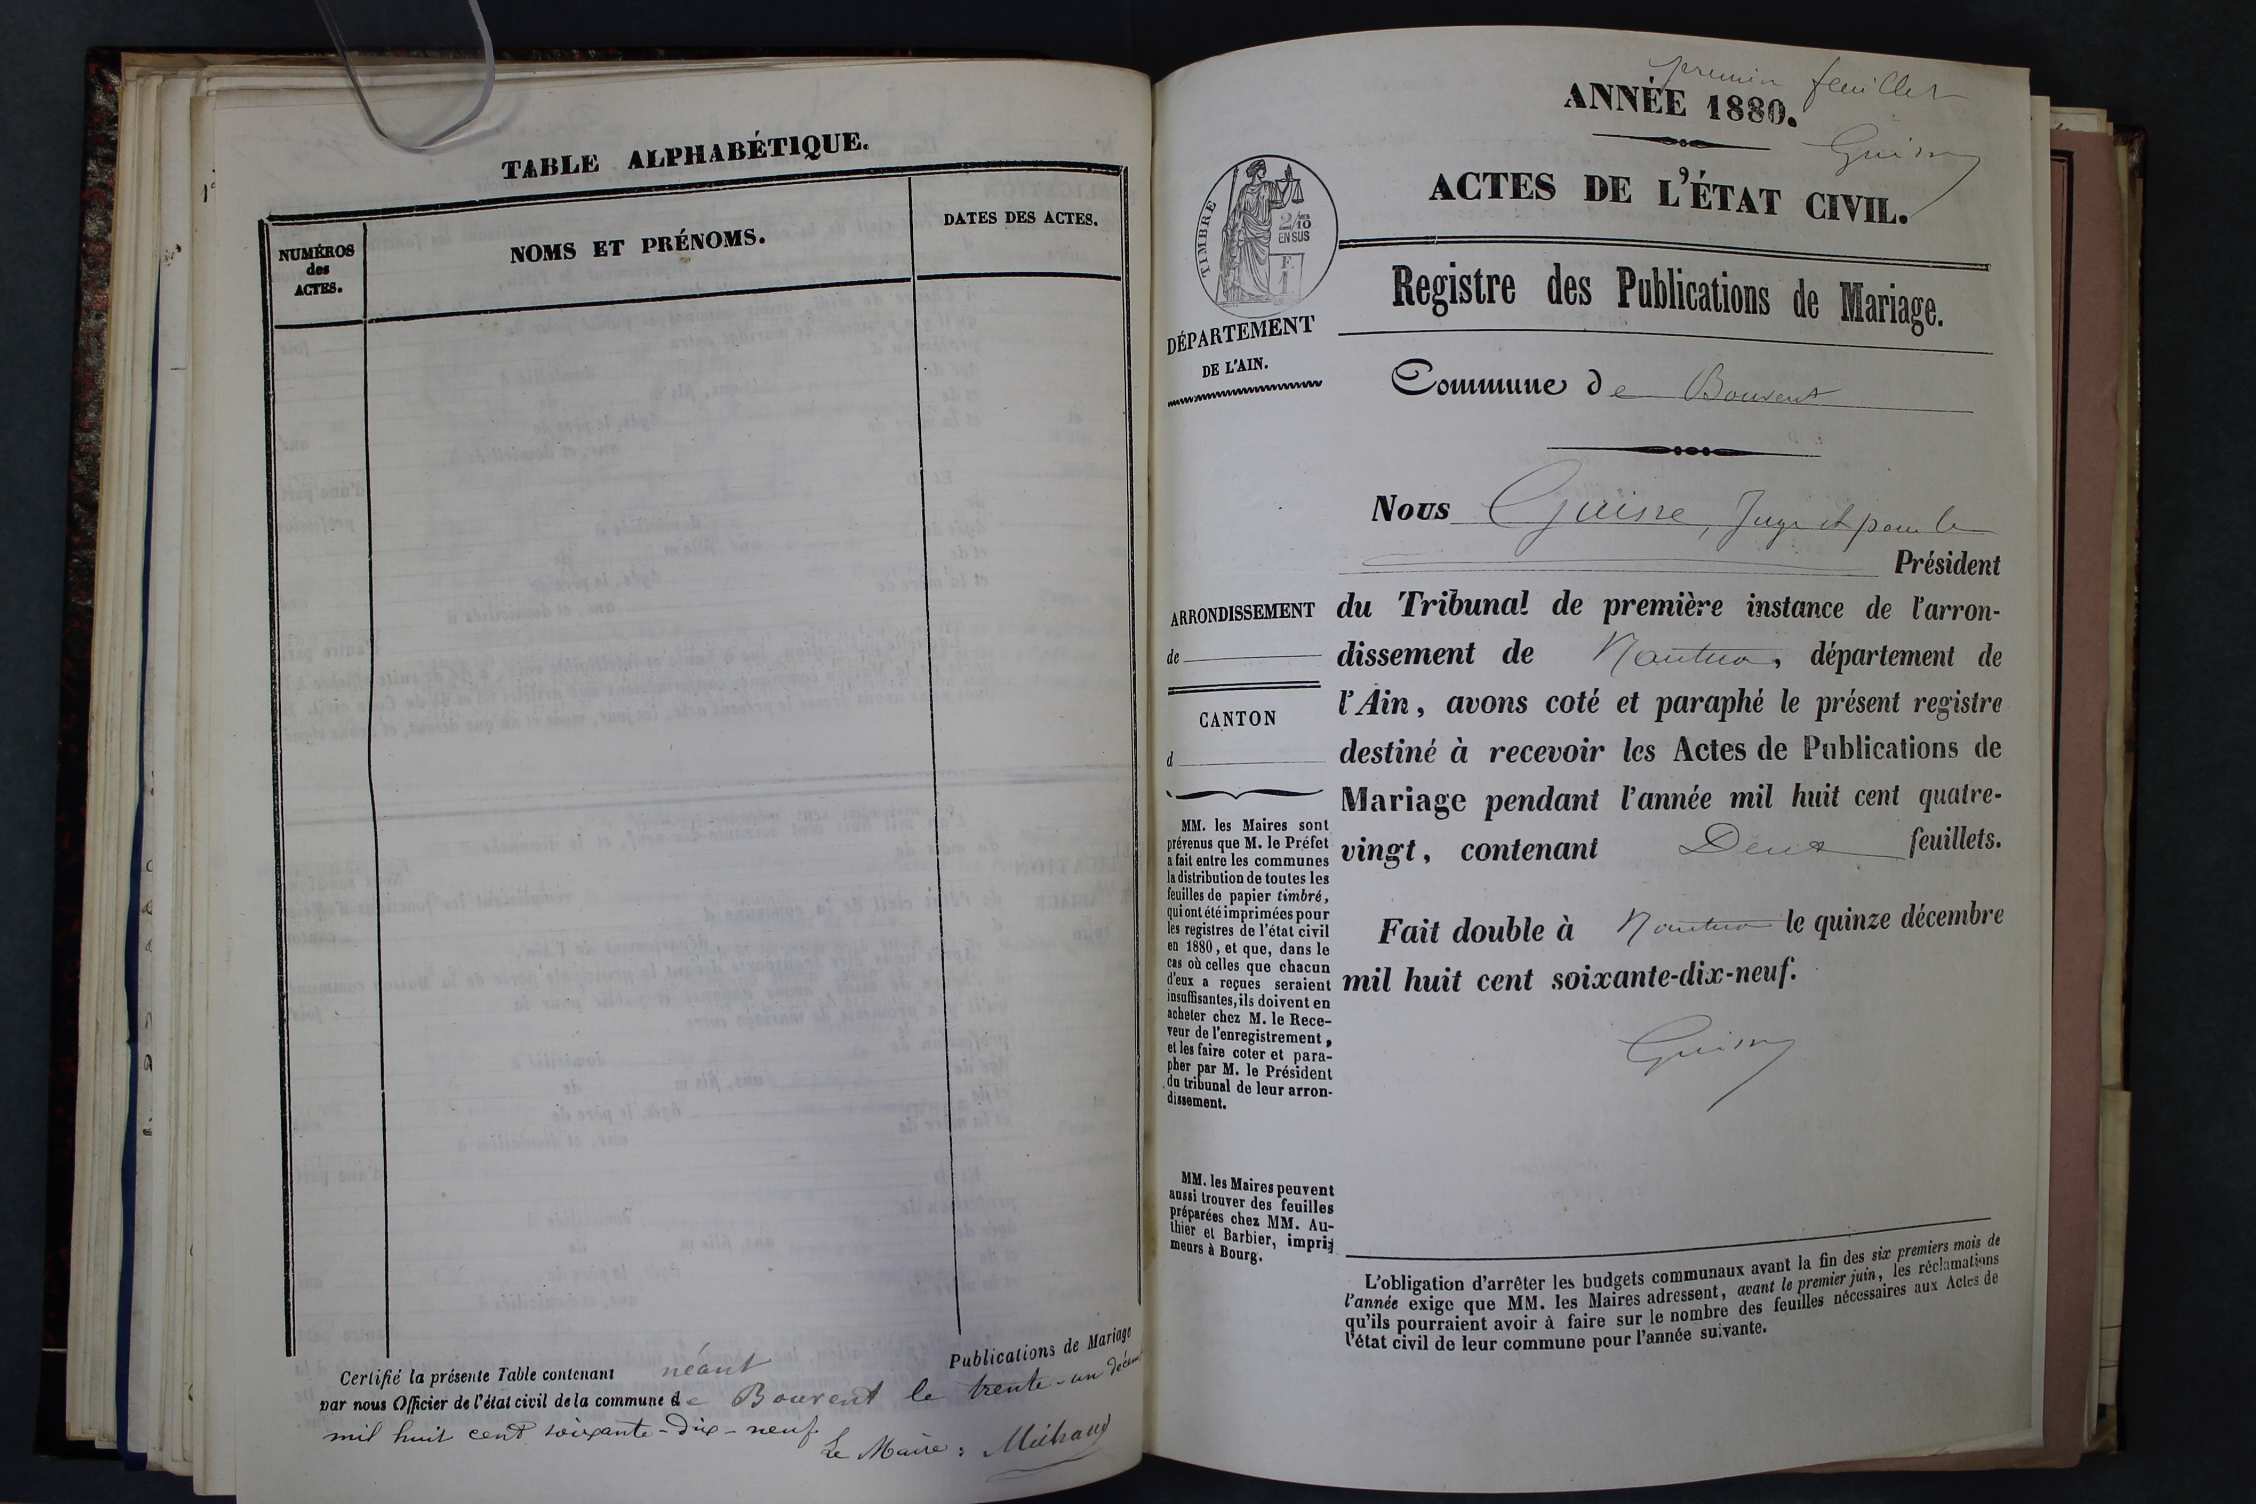 TABLE ALPHABÉTIQUE.
NUMÉROS
des
ACTES.
NOMS ET PRÉNOMS.
DATES DES ACTES.
Certifié la présente Table contenant néant Publications de Mariage
par nous Officier de l'état civil de la commune de Bouvent le trente-un décem
mil huit cent soixante-dix-neuf.
Le Maire :
premier feuillet
ANNÉE 1880.
ACTES DE L'ÉTAT CIVIL.
TIMBRE
2/10
EN SUS
F.
1
Registre des Publications de Mariage.
DÉPARTEMENT
DE L'AIN.
Commune de Bouvent
Nous Guisne, Juge et pour le
Président
ARRONDISSEMENT
de
CANTON
d
du Tribunal de première instance de l'arron-
dissement de Nantua, département de
l'Ain, avons coté et paraphé le présent registre
destiné à recevoir les Actes de Publications de
Mariage pendant l'année mil huit cent quatre-
vingt, contenant Deux feuillets.
Fait double à Nantua le quinze décembre
mil huit cent soixante-dix-neuf.
MM. les Maires sont
prévenus que M. le Préfet
a fait entre les communes
la distribution de toutes les
feuilles de papier timbré,
qui ont été imprimées pour
les registres de l'état civil
en 1880, et que, dans le
cas où celles que chacun
d'eux a reçues seraient
insuffisantes, ils doivent en
acheter chez M. le Rece-
veur de l'enregistrement,
et les faire coter et para-
pher par M. le Président
du tribunal de leur arron-
dissement.
MM. les Maires peuvent
aussi trouver des feuilles
préparées chez MM. Au-
thier et Barbier, impri-
meurs à Bourg.
L'obligation d'arrêter les budgets communaux avant la fin des six premiers mois de
l'année exige que MM. les Maires adressent, avant le premier juin, les réclamations
qu'ils pourraient avoir à faire sur le nombre des feuilles nécessaires aux Actes de
l'état civil de leur commune pour l'année suivante.